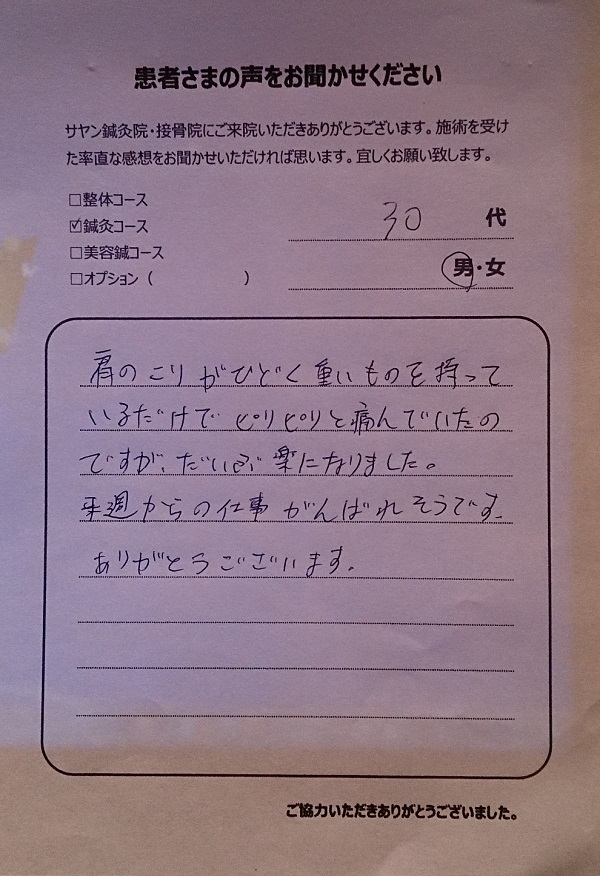 患者さまの声をお聞かせください
サヤン鍼灸院・接骨院にご来院いただきありがとうございます。施術を受け
た率直な感想をお聞かせいただければ思います。宜しくお願い致します。
□整体コース
☑鍼灸コース
30 代
□美容鍼コース
男・女
□オプション（ ）
肩のこりがひどく重いものを持って
いるだけでピリピリと痛んでいたの
ですが、だいぶ楽になりました。
来週からの仕事がんばれそうです。
ありがとうございます。
ご協力いただきありがとうございました。